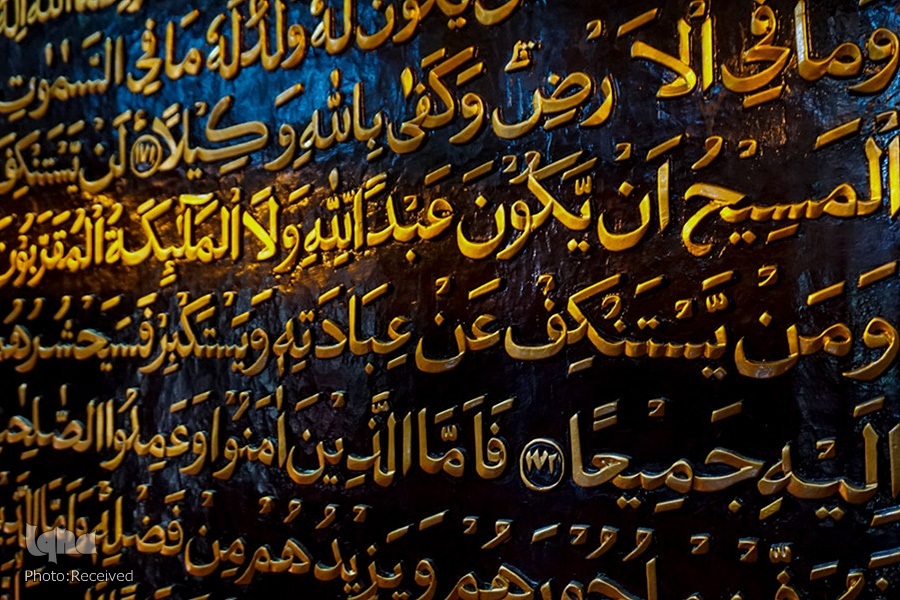 يَكُوْنَ لَهٗ وَلَدٌ لَهٗ مَا فِي السَّمٰوٰتِ
وَمَا فِي الْاَرْضِ ؕ وَكَفٰى بِاللّٰهِ وَكِيْلًا ﴿١٧١﴾ لَنْ يَّسْتَنْكِفَ
الْمَسِيْحُ اَنْ يَّكُوْنَ عَبْدًا لِّلّٰهِ وَلَا الْمَلٰٓئِكَةُ الْمُقَرَّبُوْنَ
وَمَنْ يَّسْتَنْكِفْ عَنْ عِبَادَتِهٖ وَيَسْتَكْبِرْ فَسَيَحْشُرُهُمْ
اِلَيْهِ جَمِيْعًا ﴿١٧٢﴾ فَاَمَّا الَّذِيْنَ اٰمَنُوْا وَعَمِلُوا الصّٰلِحٰتِ
اُجُوْرَهُمْ وَيَزِيْدُهُمْ مِنْ فَضْلِهٖ وَاَمَّا الَّذِيْنَ
Photo:Received